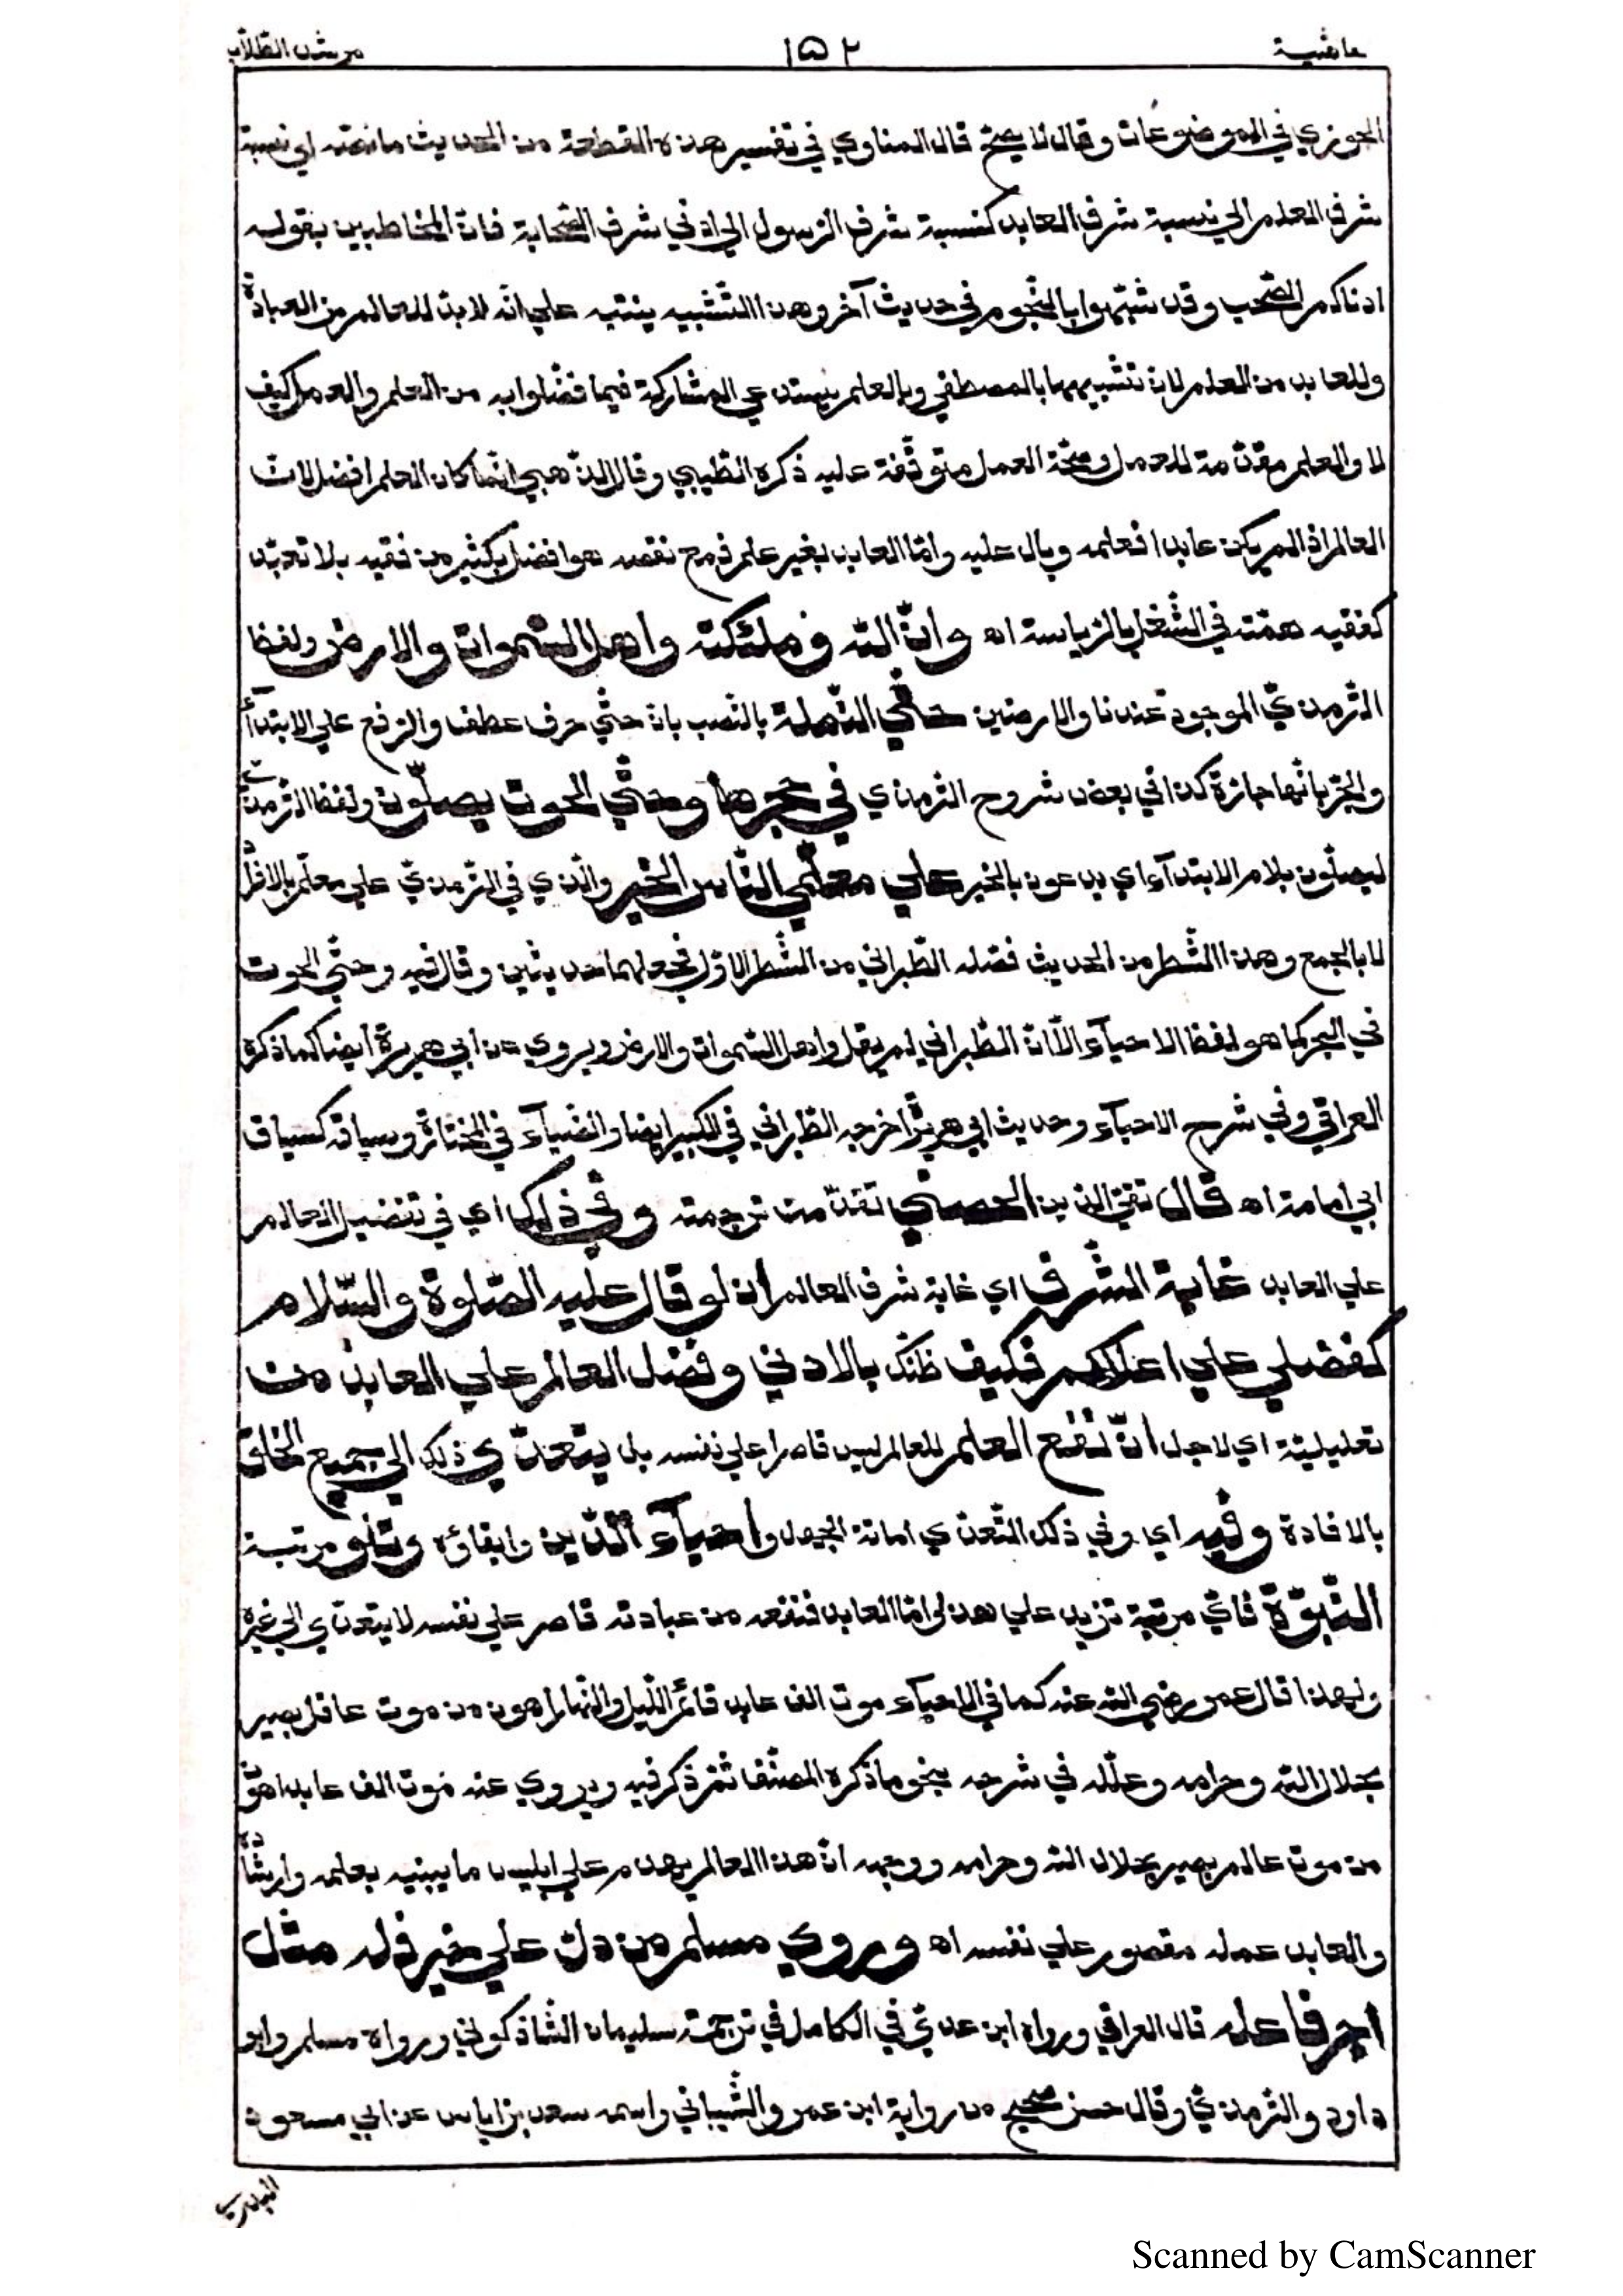 حاشية ١٥٢ مرشد الطلاب
الجوزي في الموضوعات وقال لا يصح قال المناوي في تفسير هذه القطعة من الحديث ما نصّه اي نسبة
شرف العلم الي نسبة شرف العابد كنسبة شرف الرسول الي ادني شرف الصّحابة فانّ المخاطبين بقوله
ادناكم الصّحب وقد شبّهوا بالنّجوم في حديث آخر وهذا التّشبيه ينبّه علي انّه لا بدّ للعالم من العبادة
وللعابد من العلم لانّ تشبيههما بالمصطفي وبالعلم يستدعي المشاركة فيما فضّلوا به من العلم والعمل كيف
لا والعلم مقدّمة للعمل وصحّة العمل متوقّفة عليه ذكره الطّيبي وقال الذّهبي انّما كان العلم افضل لانّ
العالم اذا لم يكن عابدا فعلمه وبال عليه وامّا العابد بغير علم فمع نقصه هو افضل بكثير من فقيه بلا تعبّد
كفقيه همّته في الشّغل بالرّياسة اه وانّ اللّه وملئكته واهل السّموات والارض ولفظ
التّرمذيّ الموجود عندنا والارضين حتّي النّملة بالنّصب بانّ حتّي حرف عطف والرّفع علي الابتدآء
والجرّ بانّها جارّة كذا في بعض شروح الترمذي في جحرها وحتّي الحوت يصلّون ولفظ التّرمذيّ
ليصلّون بلام الابتدآء اي يدعون بالخير علي معلّمي النّاس الخير والّذي في التّرمذيّ علي معلّم بالافراد
لا بالجمع وهذا الشّطر من الحديث فصّله الطّبراني من الشّطر الاوّل فجعلهما حديثين وقال فيه وحتّي الحوت
في البحر كما هو لفظ الاحيآء الّا انّ الطّبراني لم يقل واهل السّموات والارض ويروي عن ابي هريرة ايضا كما ذكره
العراقي وفي شرح الاحيآء وحديث ابي هريرة اخرجه الطّبراني في الكبير ايضا والضّيآء في المختارة وسياقه كسياق
ابي امامة اه قال تقيّ الدّين الحصني تقدّمت ترجمته وفي ذلك اي في تفضيل العالم
علي العابد غاية الشّرف اي غاية شرف العالم ان لو قال عليه الصّلوة والسّلام
كفضلي علي اعلاكم فكيف ظنّك بالادني وفضل العالم علي العابد من
تعليليّة اي لاجل انّ نفع العلم للعالم ليس قاصرا علي نفسه بل يتعدّي ذلك الي جميع الخلق
بالافادة وفيه اي وفي ذلك التّعدّي اماتة الجهل واحيآء الدّين وابقاؤه وتتلو مرتبة
النّبوّة فايّ مرتبة تزيد علي هذه امّا العابد فنفعه من عبادته قاصر علي نفسه لا يتعدّي الي غيره
ولهذا قال عمر رضي اللّه عنه كما في الاحيآء موت الف عابد قائم اللّيل والنّهار اهون من موت عاقل بصير
بحلال اللّه وحرامه وعلّله في شرحه بنحو ما ذكره المصنّف ثمّ ذكر فيه ويروي عنه موت الف عابد اهون
من موت عالم بصير بحلال اللّه وحرامه ووجهه انّ هذا العالم يهدم علي ابليس ما يبنيه بعلمه وارشاده
والعابد عمله مقصور علي نفسه اه وروي مسلم من دلّ علي خير فله مثل
اجر فاعله قال العراقي ورواه ابن عديّ في الكامل في ترجمة سليمان الشّاذكوني ورواه مسلم وابو
داود والتّرمذيّ وقال حسن صحيح من رواية ابن عمرو الشّيباني واسمه سعد بن اياس عن ابي مسعود
البدري
Scanned by CamScanner